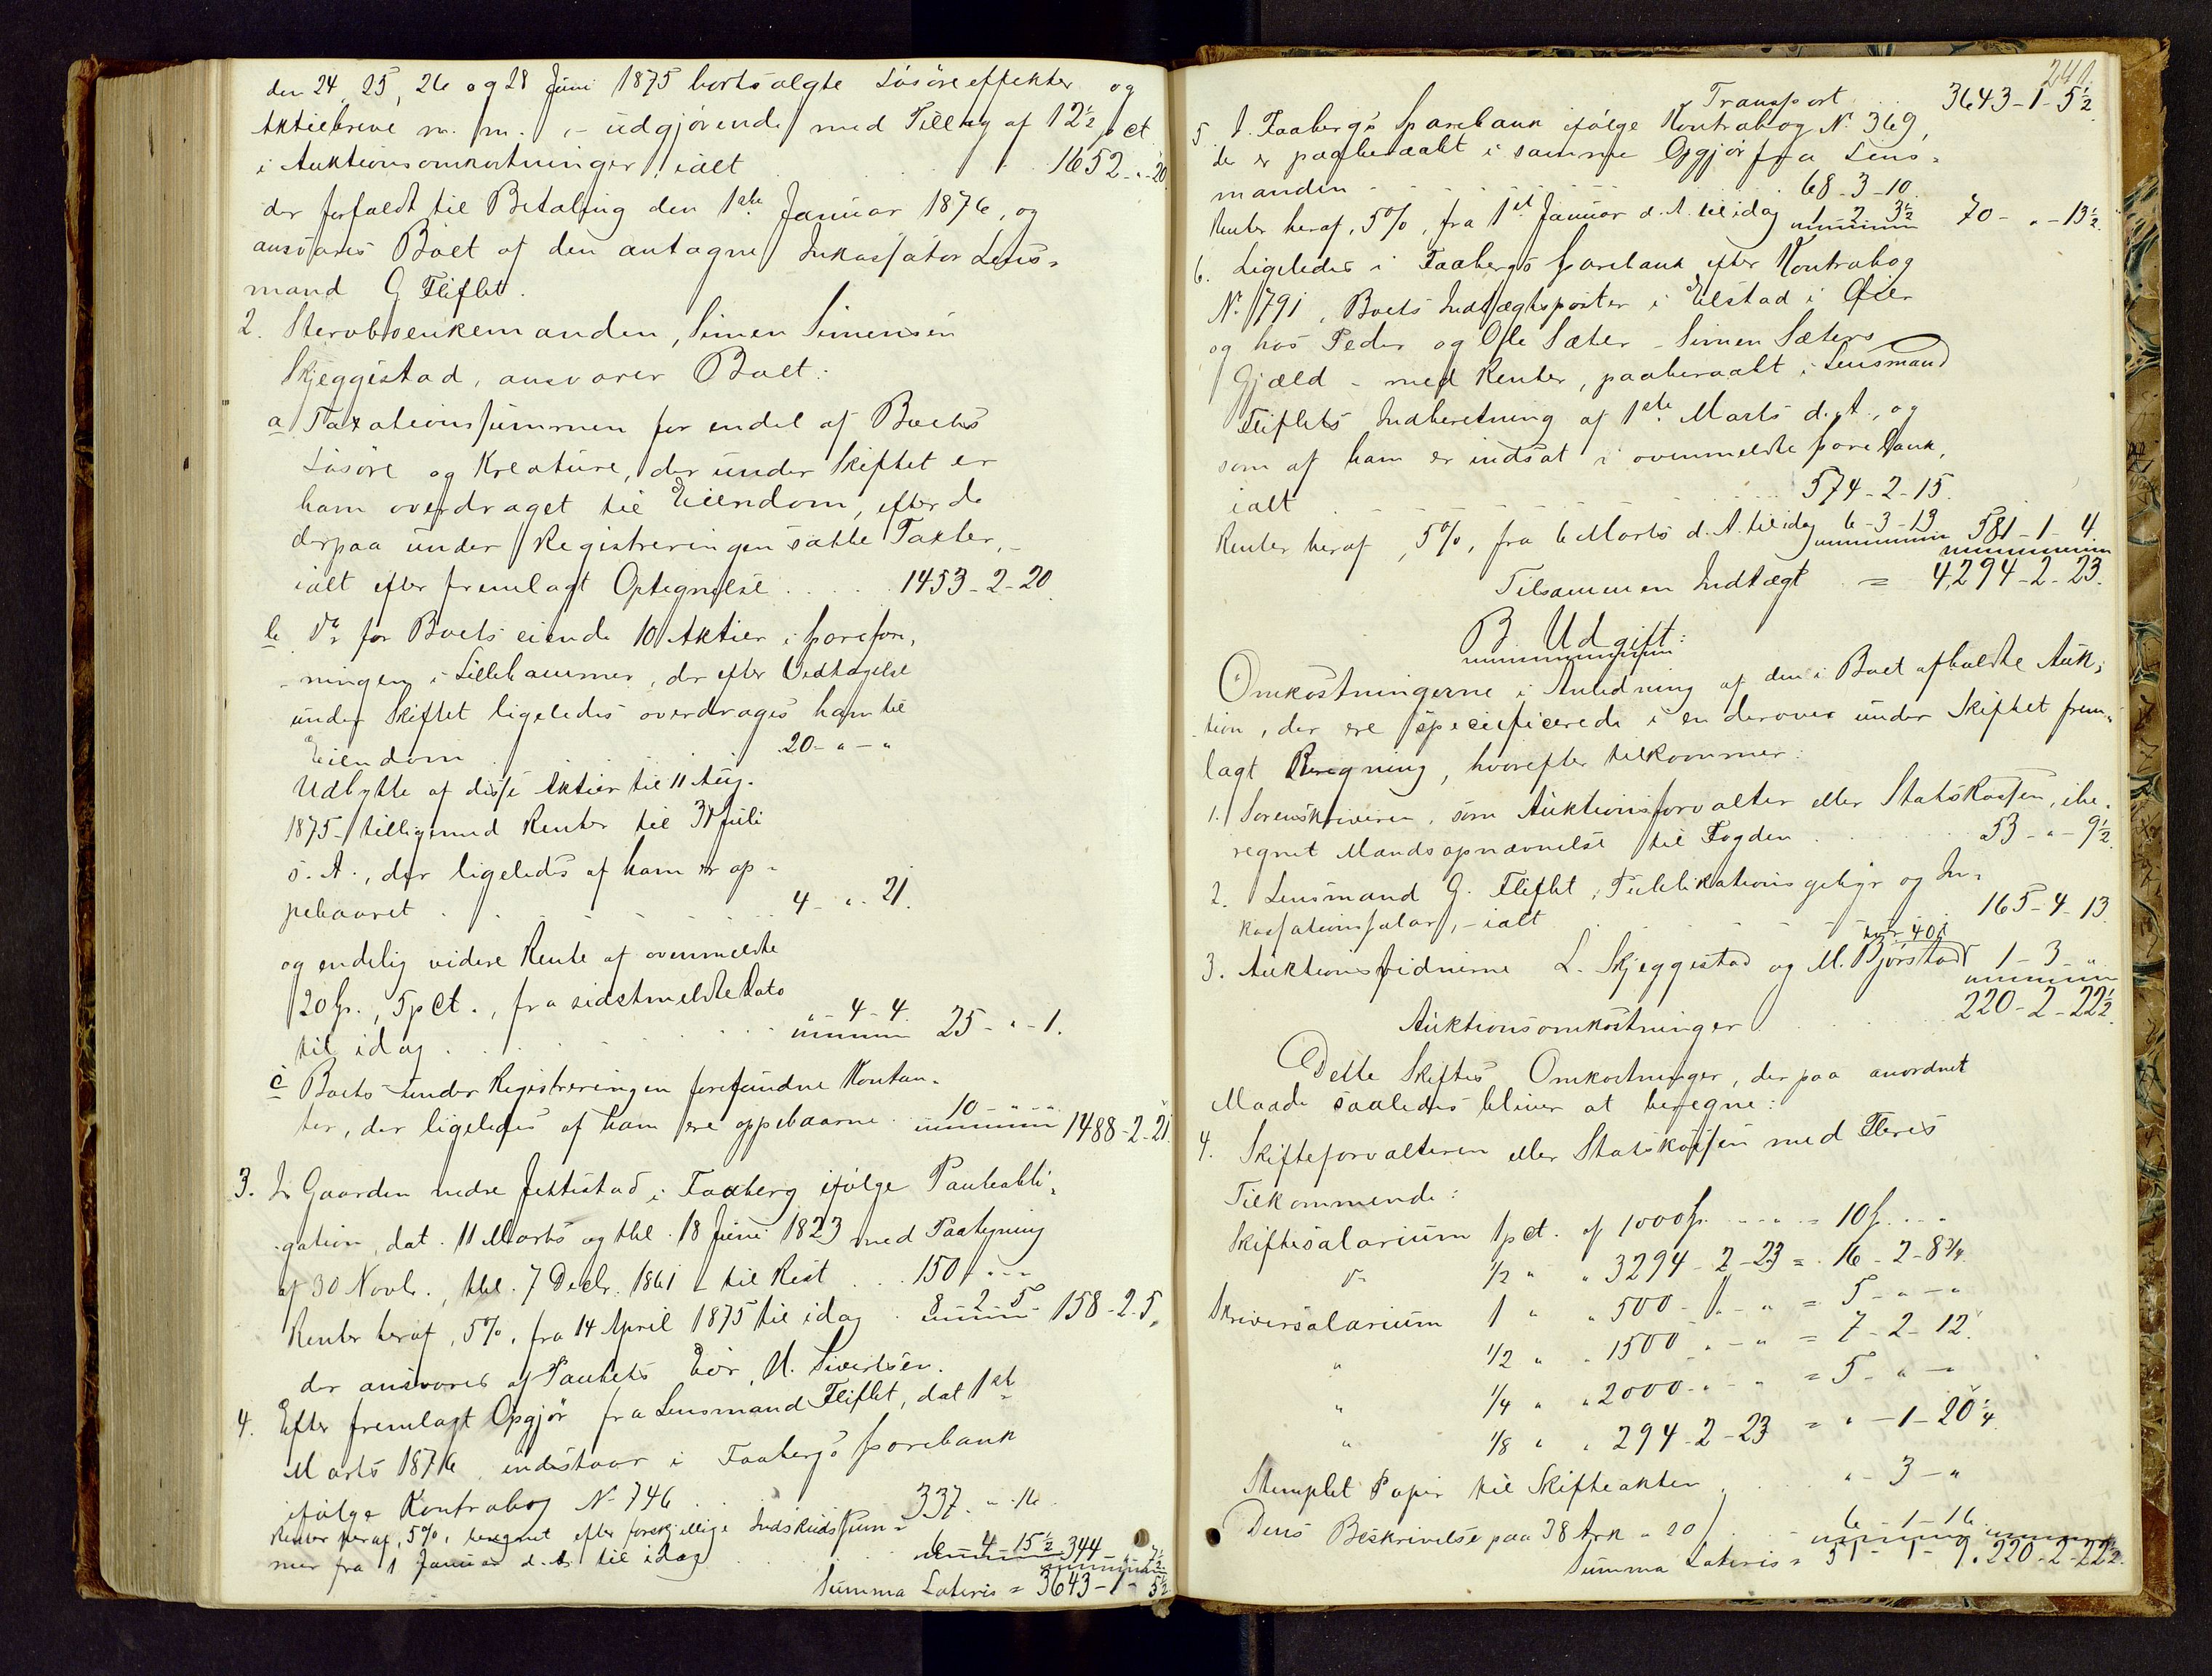 den 24, 25, 26 og 28 Juni 1875 bortsolgte Løsøreeffekter og
Aktiebreve m. m. , - udgjørende med Tillæg af 12½ pct
i Auktionsomkostninger, ialt 1652 - " - 20.
der forfaldt til Betaling den 1ste Januar 1876, og
ansvares Boet af den antagne Inkassator Lens-
mand G Fliflet.
2. Stervboenkemanden, Simen Simensen
Skjeggestad, ansvarer Boet:
a Taxationssummen for endel af Boets
Løsøre og Kreature, der under Skiftet er
ham overdraget til Eiendom, efter de
derpaa under Registreringen satte Taxter, -
ialt efter fremlagt Optegnelse . . . . . 1453 - 2 - 20
b Do for Boets eiende 10 Aktier i Forefore,
- ningen i Lillehammer, der efter Vedtagelse
under Skiftet ligeledes overdrages ham til
Eiendom 20 - " - "
Udbytte af disse Aktier til 11 Aug.
1875 - tilligemed Renter til 31 Juli
s. A., der ligeledes af ham er op-
pebaaret . . . 4 - " - 21.
og endelig videre Rente af ovenmeldte
20 Sp., 5 pCt., fra sidstmeldte Dato
til idag . . . " - 4 - 4. 25 - " - 1.
c Boets under Registreringen forefundne Kontan-
ter, der ligeledes af ham ere oppebaarne . 10 - " - " 1488 - 2 - 21.
3. I Gaarden nedre Jettestad i Faaberg ifølge Panteobli-
gation, dat. 11 Marts og thl. 18 Juni 1823 med Paategning
af 30 Novb., thl. 7 Decb. 1861 - til Rest . . . 150 - " - "
Renter heraf, 5%, fra 14 April 1875 til idag . 8 - 2 - 5 158 - 2 - 5.
der ansvares af Pantets Eier, M. Sivertsen.
4. Efter fremlagt Opgjør fra Lensmand Fliflet, dat 1ste
Marts 1876, indestaar i Faabergs Sparebank
ifølge Kontrabog No 746 . . 337 - " - 16.
Renter heraf, 5%, beregnet efter forskjellige Indskudssum-
mer fra 1 Januar d. A. til idag 6 - 4 - 15½ 344 - " - 7½
Summa Lateris = 3643 - 1 - 5½
241.
Transport . . 3643 - 1 - 5½
5. I Faabergs Sparebank ifølge Kontrabog No 369,
der er paaberaabt i samme Opgjør fra Lens-
manden . . . 68 - 3 - 10.
Renter heraf, 5%, fra 1st Januar d. A. til idag 1 - 2 - 3½ 70 - " - 13½.
6. Ligeledes i Faabergs Sparebank efter Kontrabog
No 791, Boets Indtægtsposter i Eilstad i Øier
og hos Peder og Ole Sæter - Simen Sæters
Gjæld - med Renter, paaberaabt i Lensmand
Fliflets Indberetning af 1ste Marts d. A., og
som af ham er indsat i ovenmeldte Sparebank,
ialt . . . 574 - 2 - 15.
Renter heraf, 5%, fra 6 Marts d. A. til idag 6 - 3 - 13 581 - 1 - 4.
Tilsammen Indtægt = 4,294 - 2 - 23.
B. Udgift:
Omkostningerne i Anledning af den i Boet afholdte Auk-
tion, der ere specificerede i en derover under Skiftet frem-
lagt Beregning, hvorefter tilkommer:
1. Sorenskriveren, som Auktionsforvalter eller Statskassen, ibe-
regnet Mandsopnævnelse til Fogden . . . 53 - " - 9½.
2. Lensmand G. Fliflet, Publikationsgebyr og In-
kassationssalar, - ialt . . . 165 - 4 - 13
3. Auktionsvidnerne L. Skjeggestad og M. Bjørstad hver 40 1 - 3 - "
Auktionsomkostninger . . . 220 - 2 - 22½.
Dette Skiftes Omkostninger, der paa anordnet
Maade saaledes bliver at beregne:
4. Skifteforvalteren eller Statskassen med Fleres
Tilkommende:
Skiftesalarium 1 pct. af 1000 Sp. . . . = 10 Sp. . . .
Do ½ " " 3294 - 2 - 23 = 16 - 2 - 8¾
Skriversalarium 1 " " 500 - " - " = 5 - " - "
" ½ " " 1500 - " - " = 7 - 2 - 12.
" ¼ " " 2000 - " - " = 5 - " - "
" ⅛ " " 294 - 2 - 23 = " - 1 - 20¼.
Stemplet Papir til Skifteakten . . . " - 3 - "
Dens Beskrivelse paa 38 Ark a 20 . . . 6 - 1 - 16.
Summa Lateris = 51 - 1 - 9. 220 - 2 - 22½.